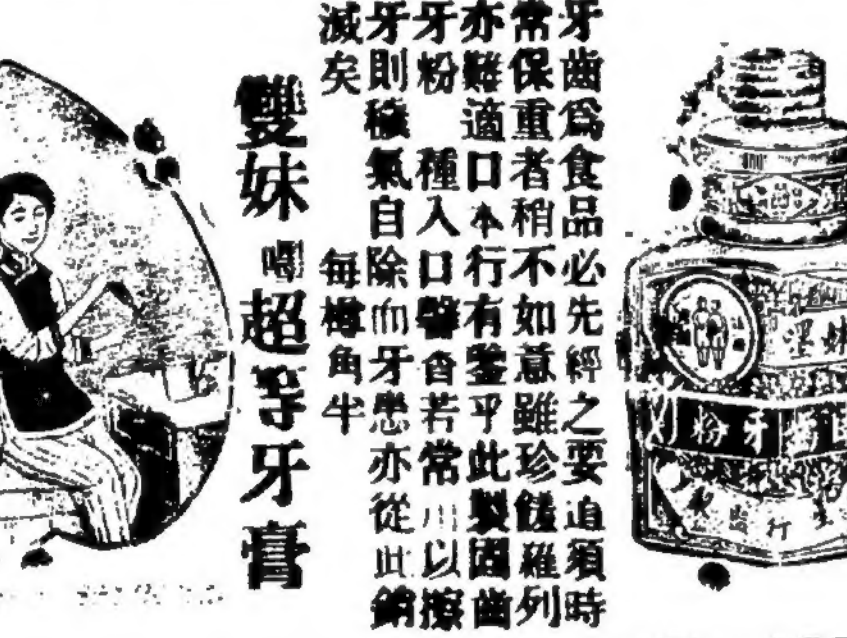 牙齒爲食品必先經之要道須時
常保重者稍不如意雖珍饈羅列
亦難適口本行有鑒乎此製固齒
牙粉 種入口馨香若常川以擦
牙則穢氣自除而牙患亦從此銷
滅矣 每樽角半
雙妹嚜超等牙膏
粉牙齒